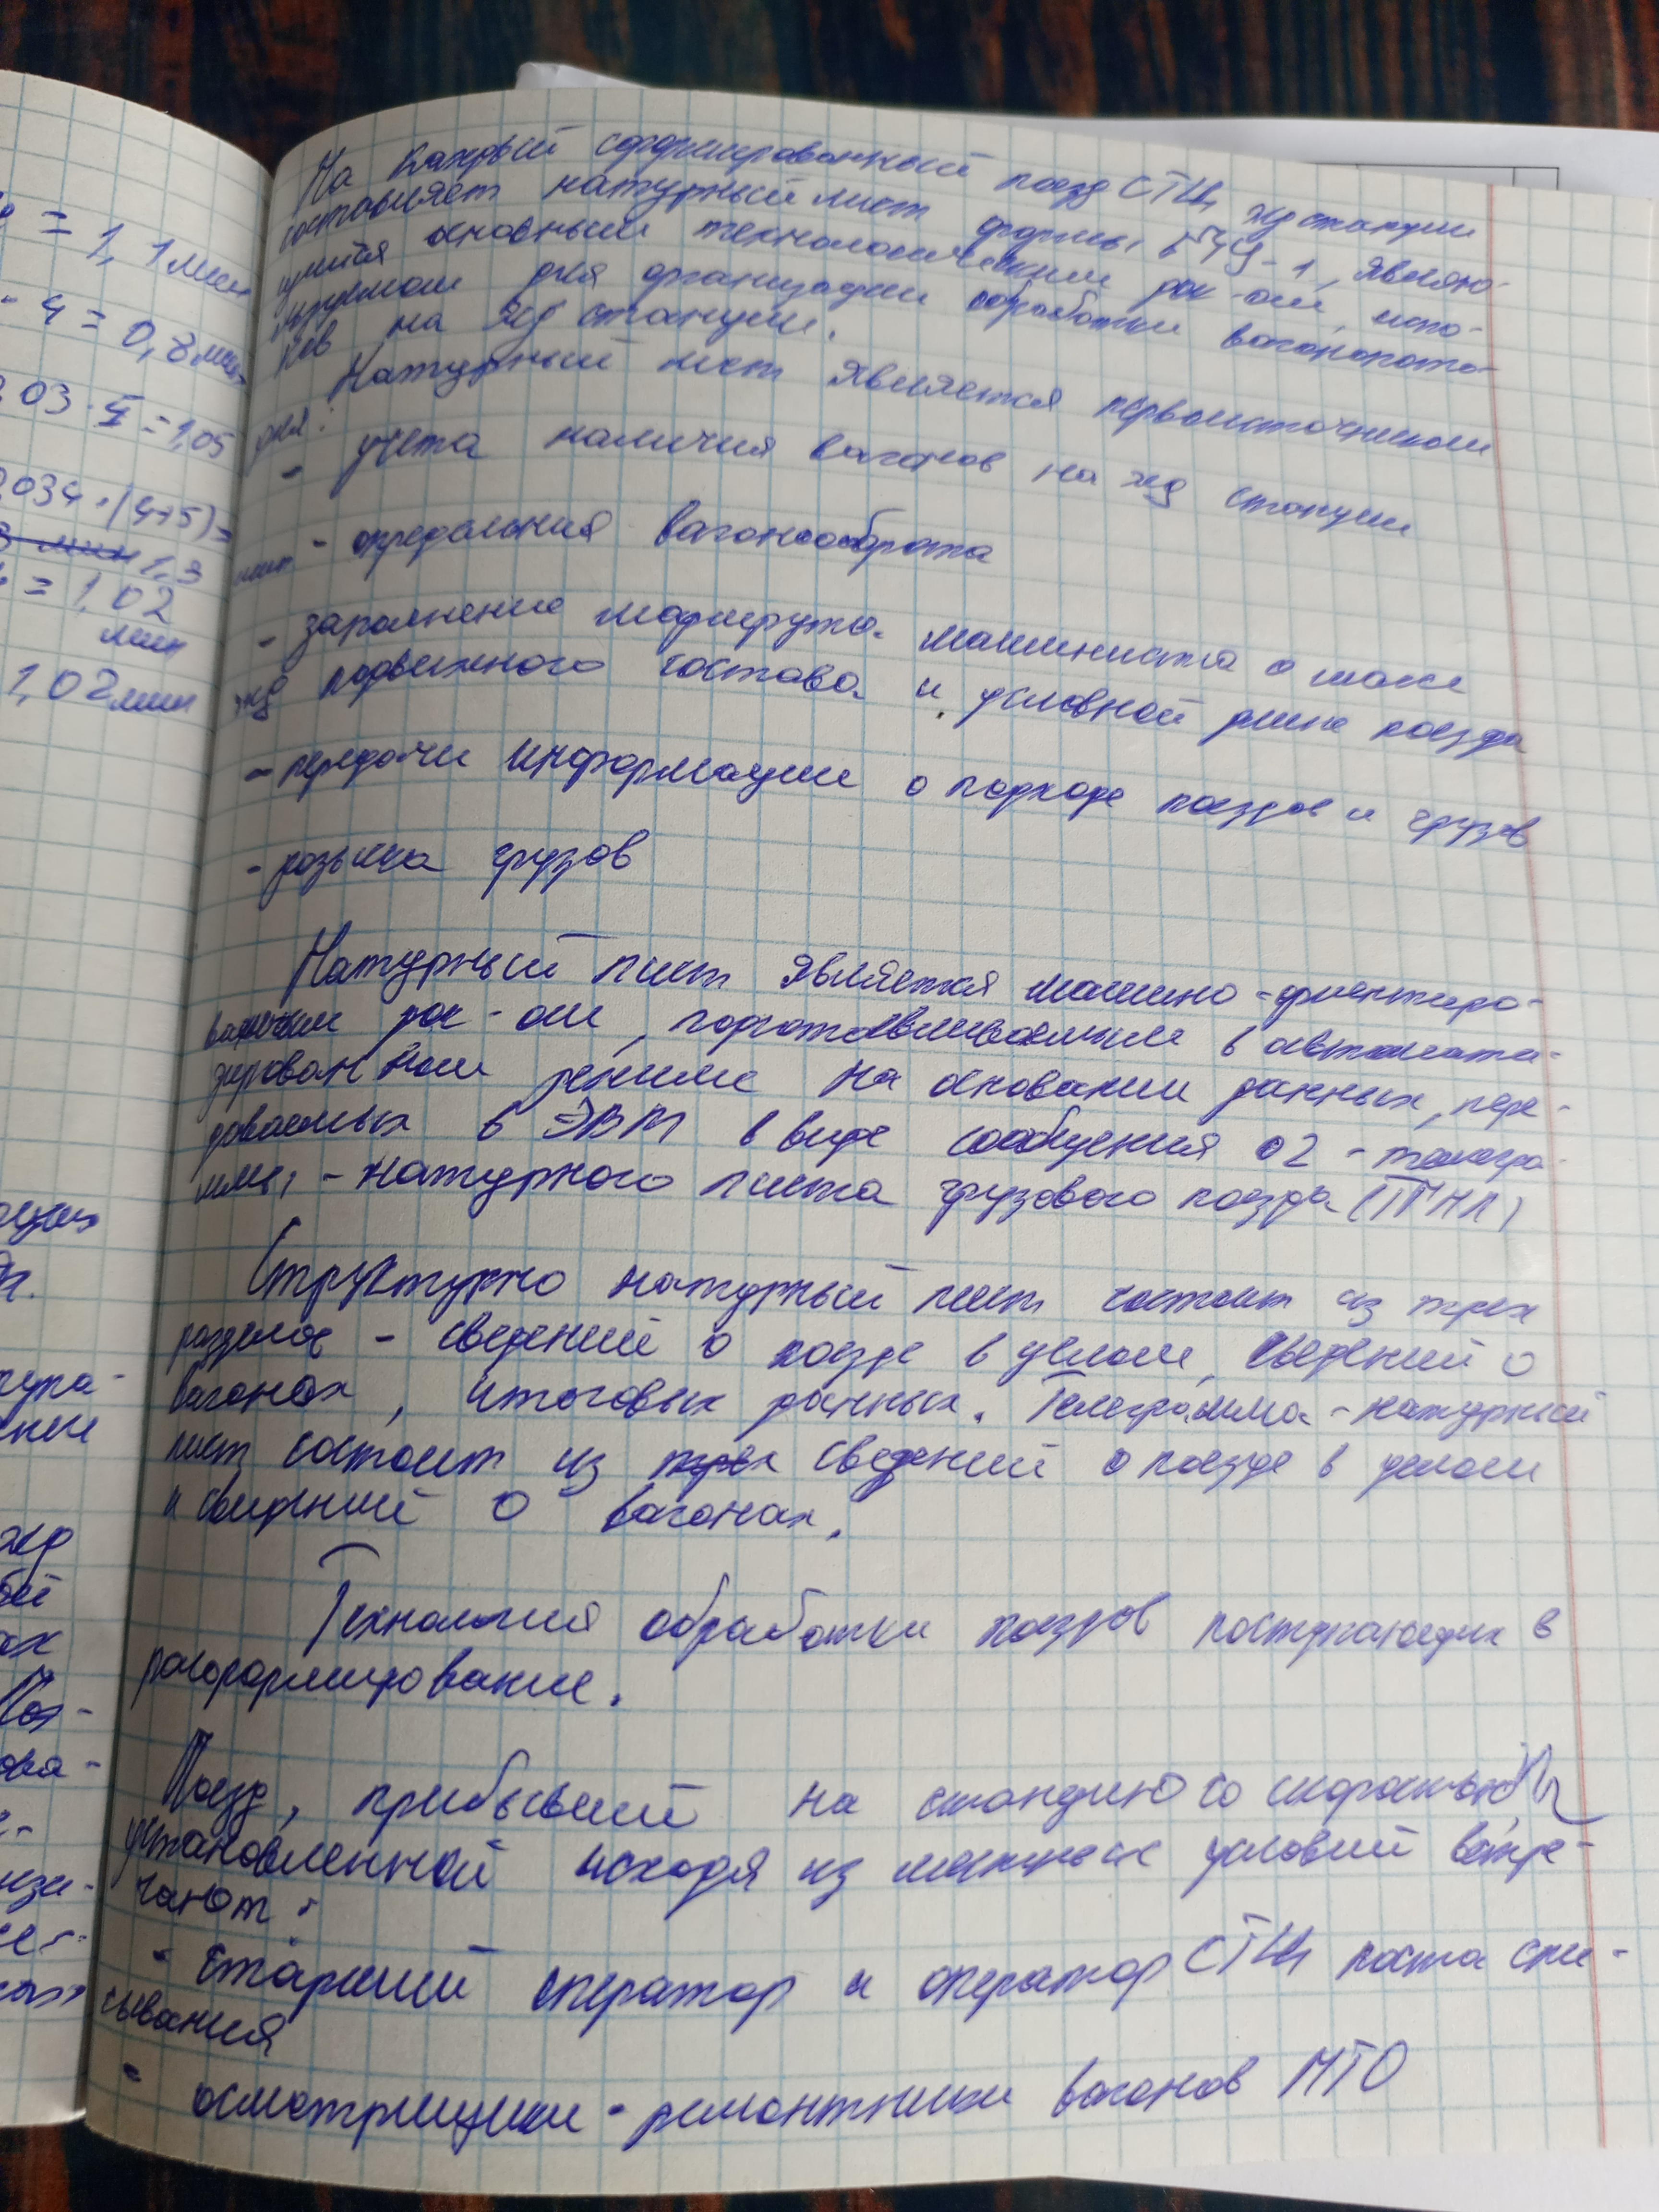 На каждый сформированный поезд СТЦ жд станции
составляет натурный лист формы ГУ-1, являю-
щийся основным технологическим док-ом, испо-
льзуемом для организации обработки вагонопото-
ков на жд станции.
Натурный лист является первоисточником
для:
- учёта наличия вагонов на жд станции
- определения вагонооборота
- заполнение маршрута машиниста о массе
жд подвижного состава и условной длине поезда
- передачи информации о подходе поездов и грузов
- розыска грузов
Натурный лист является машино-ориентиро-
ванным док-ом, подготавливаемым в автомати-
зированном режиме на основании данных, пере-
даваемых в ЭВМ в виде сообщения 02 - телегра-
ммы - натурного листа грузового поезда (ТГНЛ)
Структурно натурный лист состоит из трех
разделов - сведений о поезде в целом, сведений о
вагонах, итоговых данных. Телеграмма - натурный
лист состоит из сведений о поезде в целом
и сведений о вагонах.
Технология обработки поездов поступающих в
расформирование.
Поезд, прибывший на станцию со скоростью
установленной исходя из местных условий встре-
чают:
- Старший оператор и оператор СТЦ поста спи-
сывания
- осмотрщики - ремонтники вагонов ПТО
= 1,1 мин
· 4 = 0,8 мин
03 · 5 = 1,05
034 · (4+5) =
1,3
мин
= 1,02
мин
1,02 мин